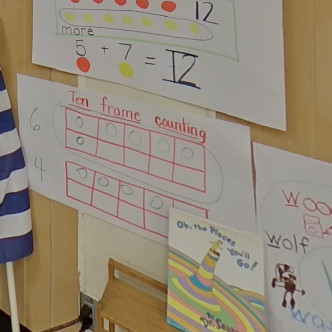 12
more
5 + 7 = 12
Ten frame counting
6
4
Oh, the Places
You'll
Go!
Dr. Seuss
wolf